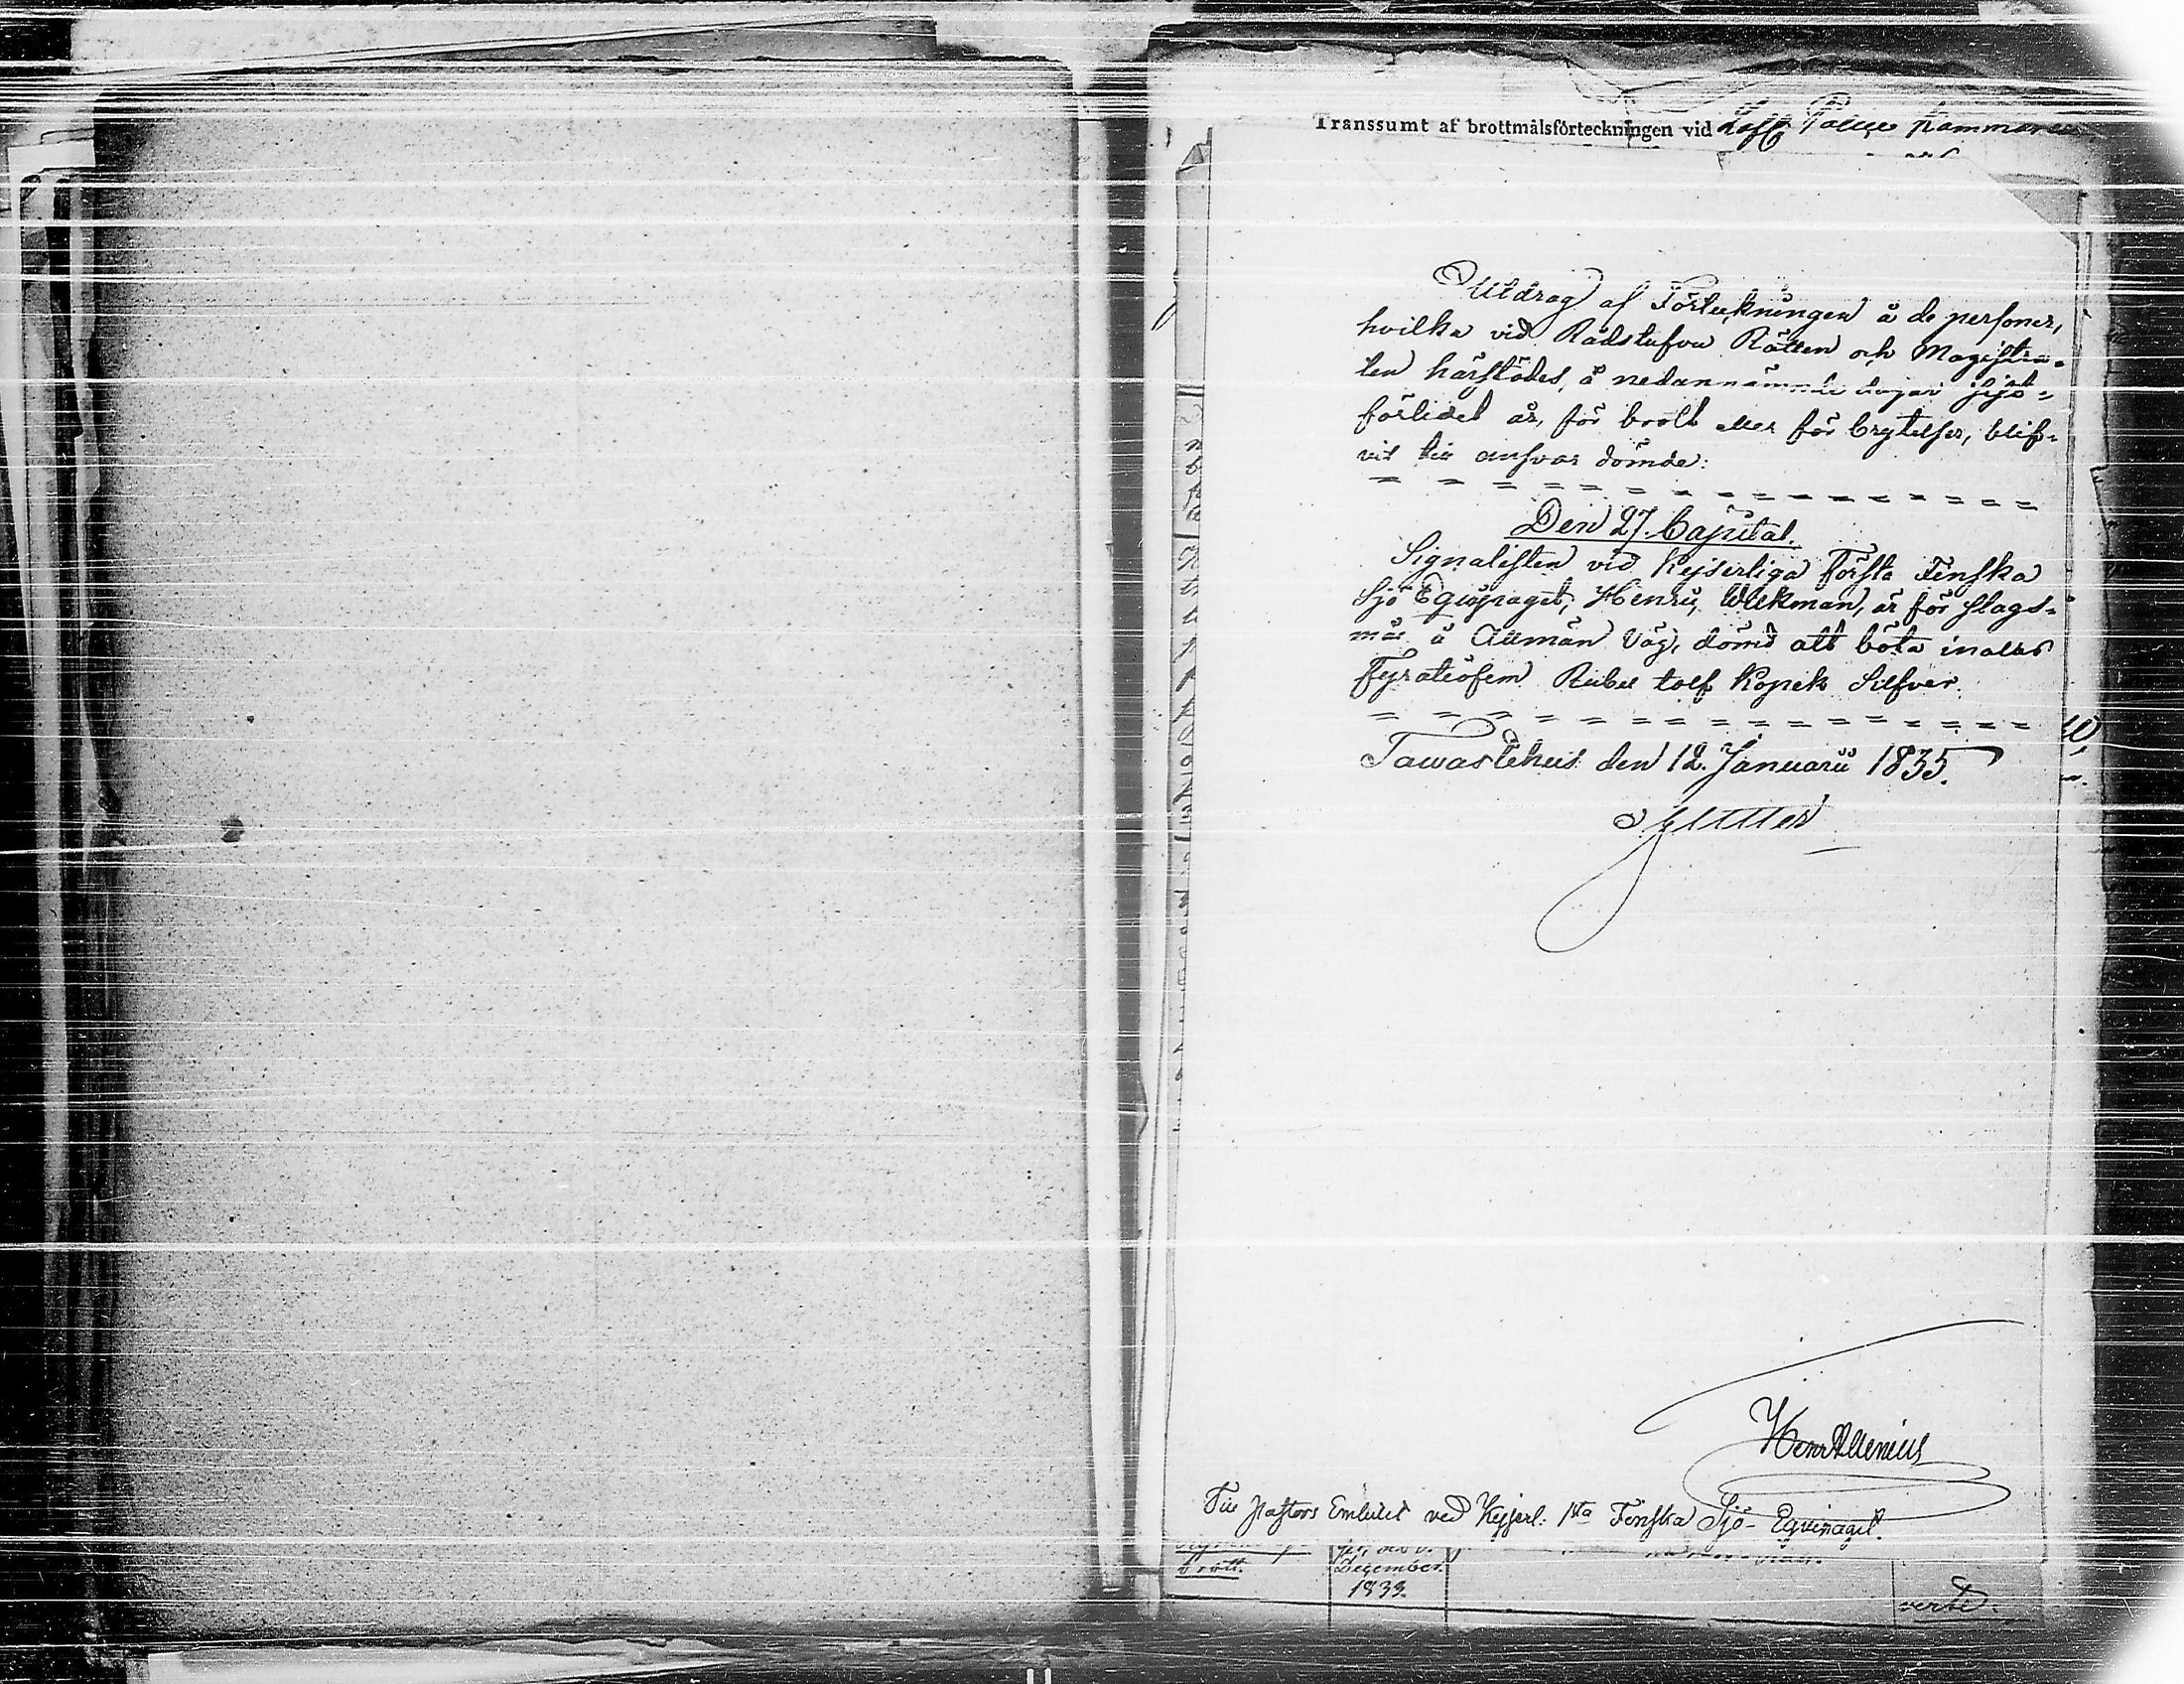 Transsumt af brottmålsförteckningen vid
Utdrag af Förteckningen å de personer,
hvilka vid Rådstufvu Rätten och Magistra-
ten härstädes, å nedannämnde dagar sist-
förlidet år, för brott eller förbrytelser, blif-
vit till ansvar dömde:
Den 27.
Signalisten vid Kejserliga första Finska
Sjö Equipaget, Henric Wickman, är för slags-
mål å Allmän Väg, dömd att böta inalles
Fyratiofem Rubel tolf Kopek Silfver.
Tawastehus den 12. Januarii 1835.
Till Pastors Embetet ved Kejserl: 1sta Finska Sjö-Eqvipaget.
brott.
December.
1833.
verte.